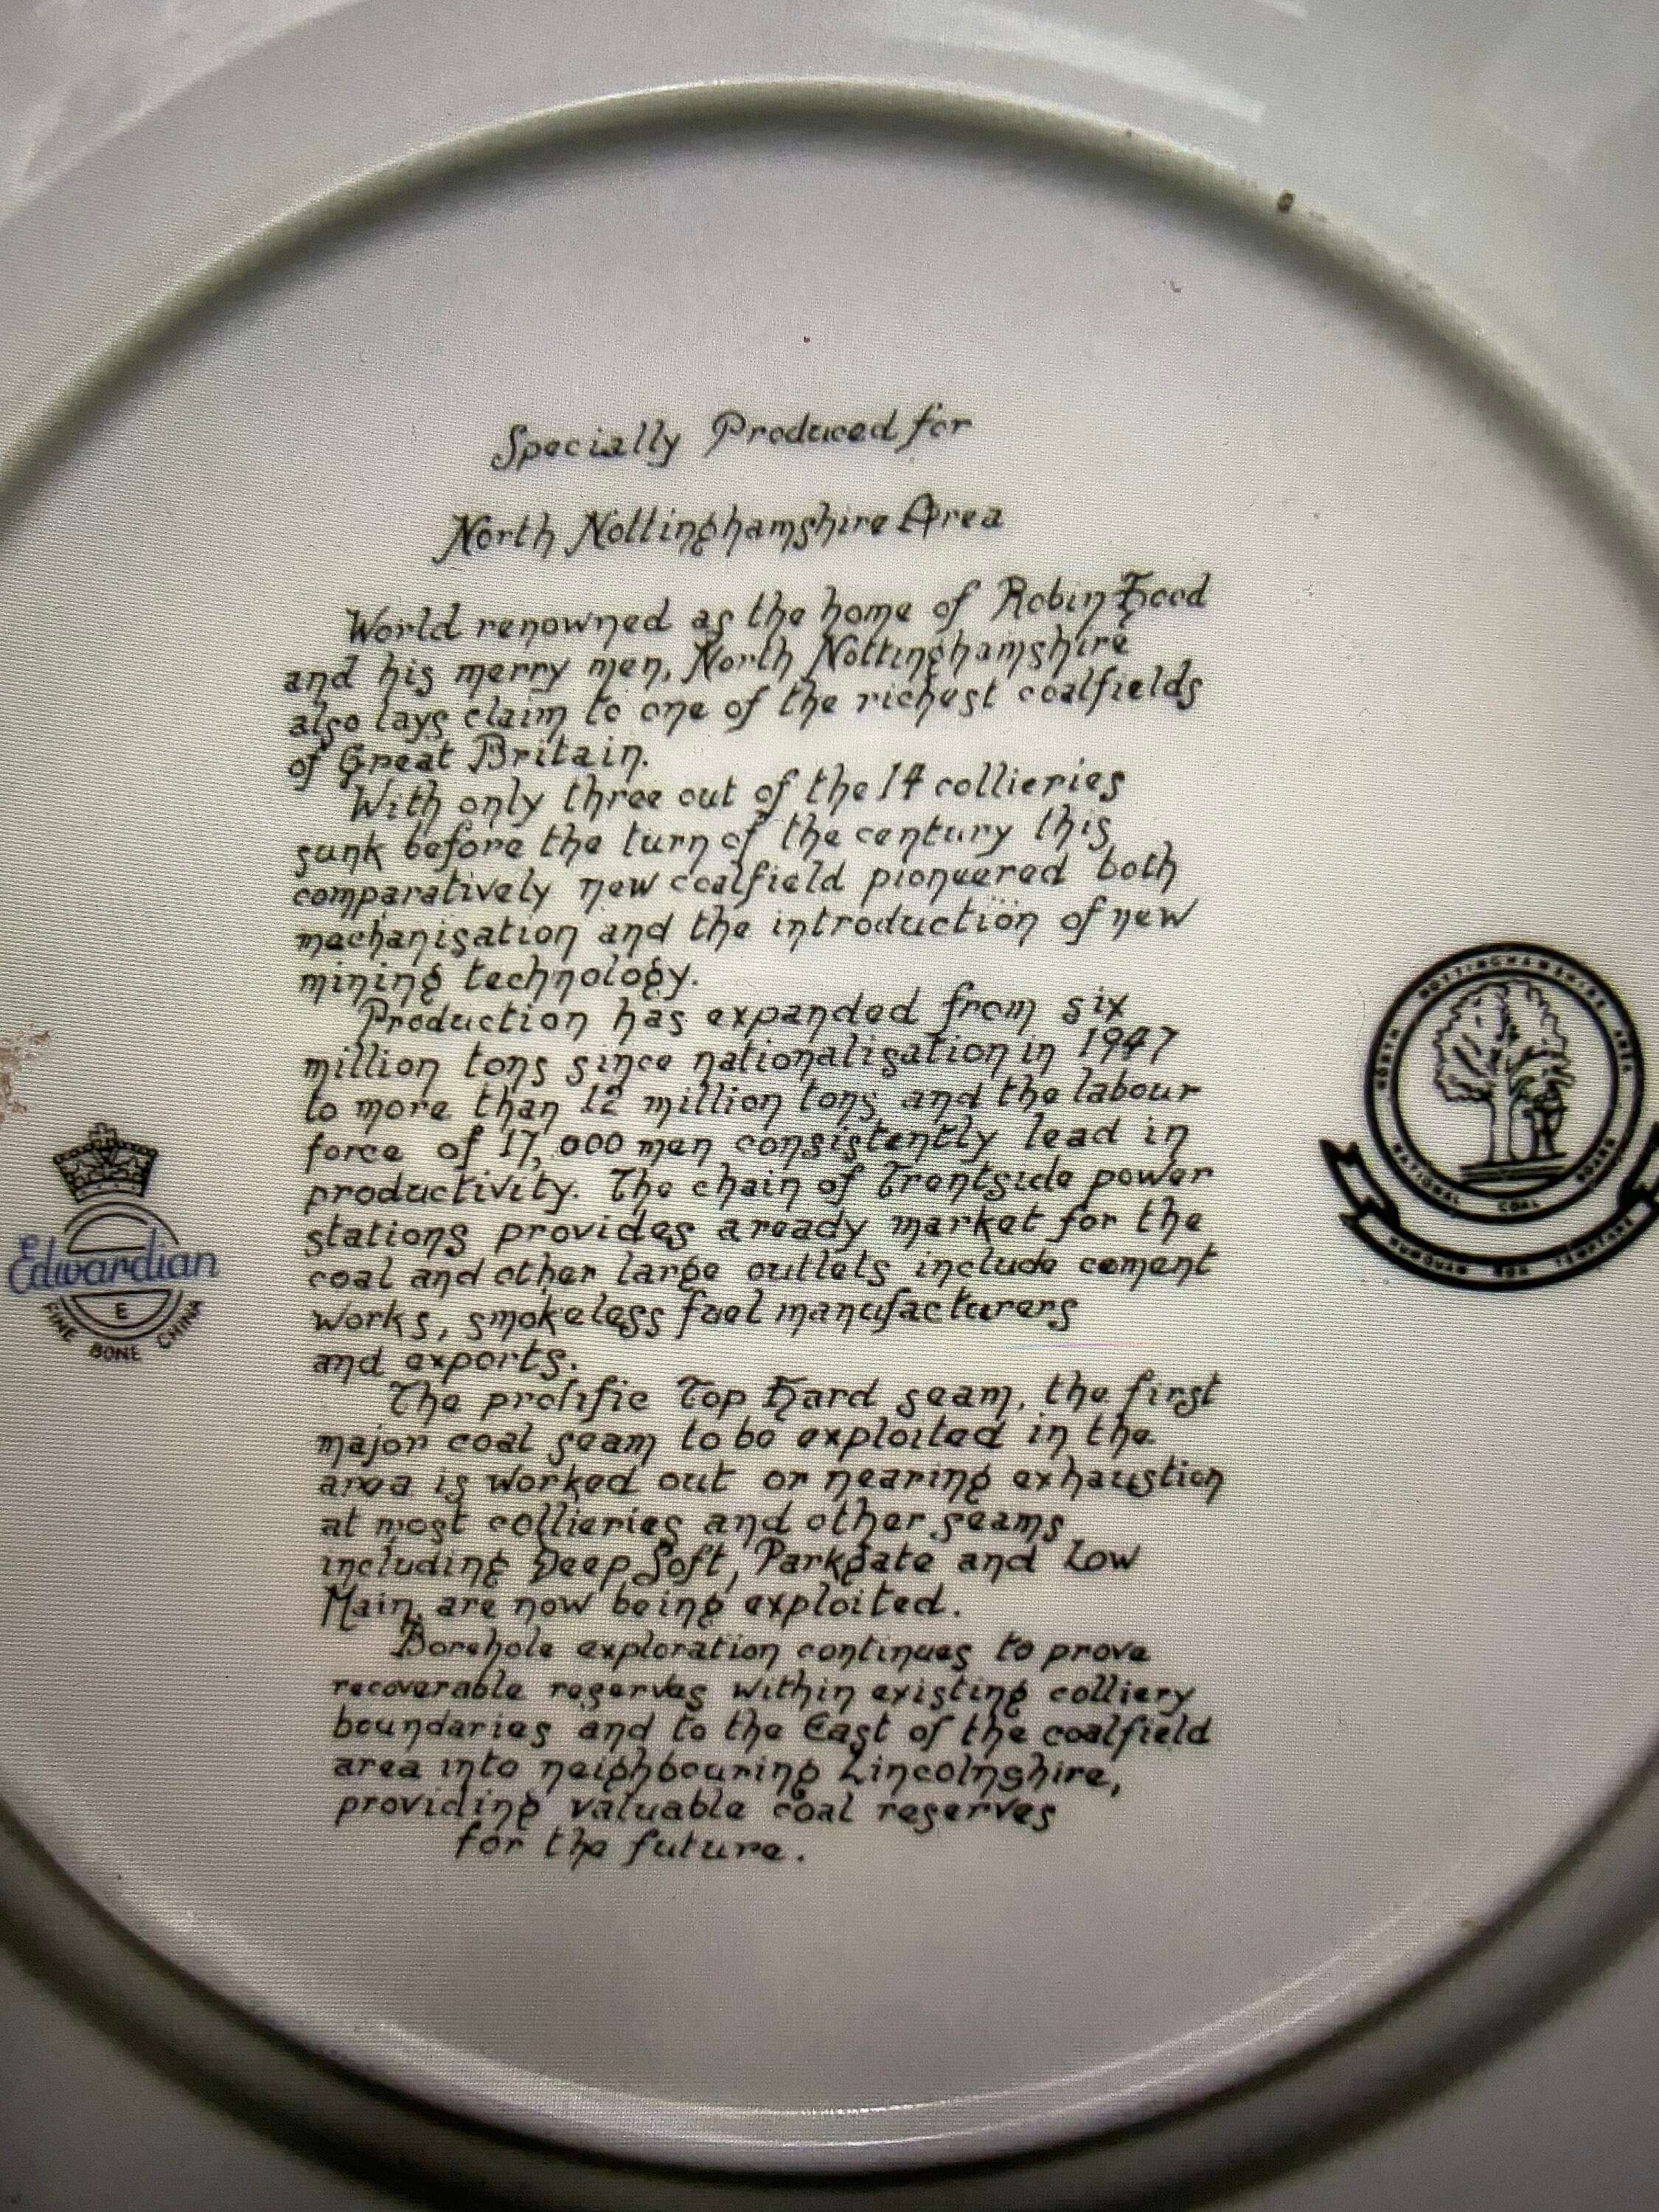 Specially Produced for
North Nottinghamshire Area
World renowned as the home of Robin Hood
and his merry men, North Nottinghamshire
also lays claim to one of the richest coalfields
of Great Britain.
With only three out of the 14 collieries
sunk before the turn of the century this
comparatively new coalfield pioneered both
mechanisation and the introduction of new
mining technology.
Production has expanded from six
million tons since nationalisation in 1947
to more than 12 million tons and the labour
force of 17,000 men consistently lead in
productivity. The chain of Trentside power
stations provides a ready market for the
coal and other large outlets include cement
works, smokeless fuel manufacturers
and exports.
The prolific Top Hard seam, the first
major coal seam to be exploited in the
area is worked out or nearing exhaustion
at most collieries and other seams
including Deep Soft, Parkgate and Low
Main, are now being exploited.
Borehole exploration continues to prove
recoverable reserves within existing colliery
boundaries and to the East of the coalfield
area into neighbouring Lincolnshire,
providing valuable coal reserves
for the future.
Edwardian
E
FINE BONE CHINA
NORTH NOTTINGHAMSHIRE AREA
NATIONAL COAL BOARD